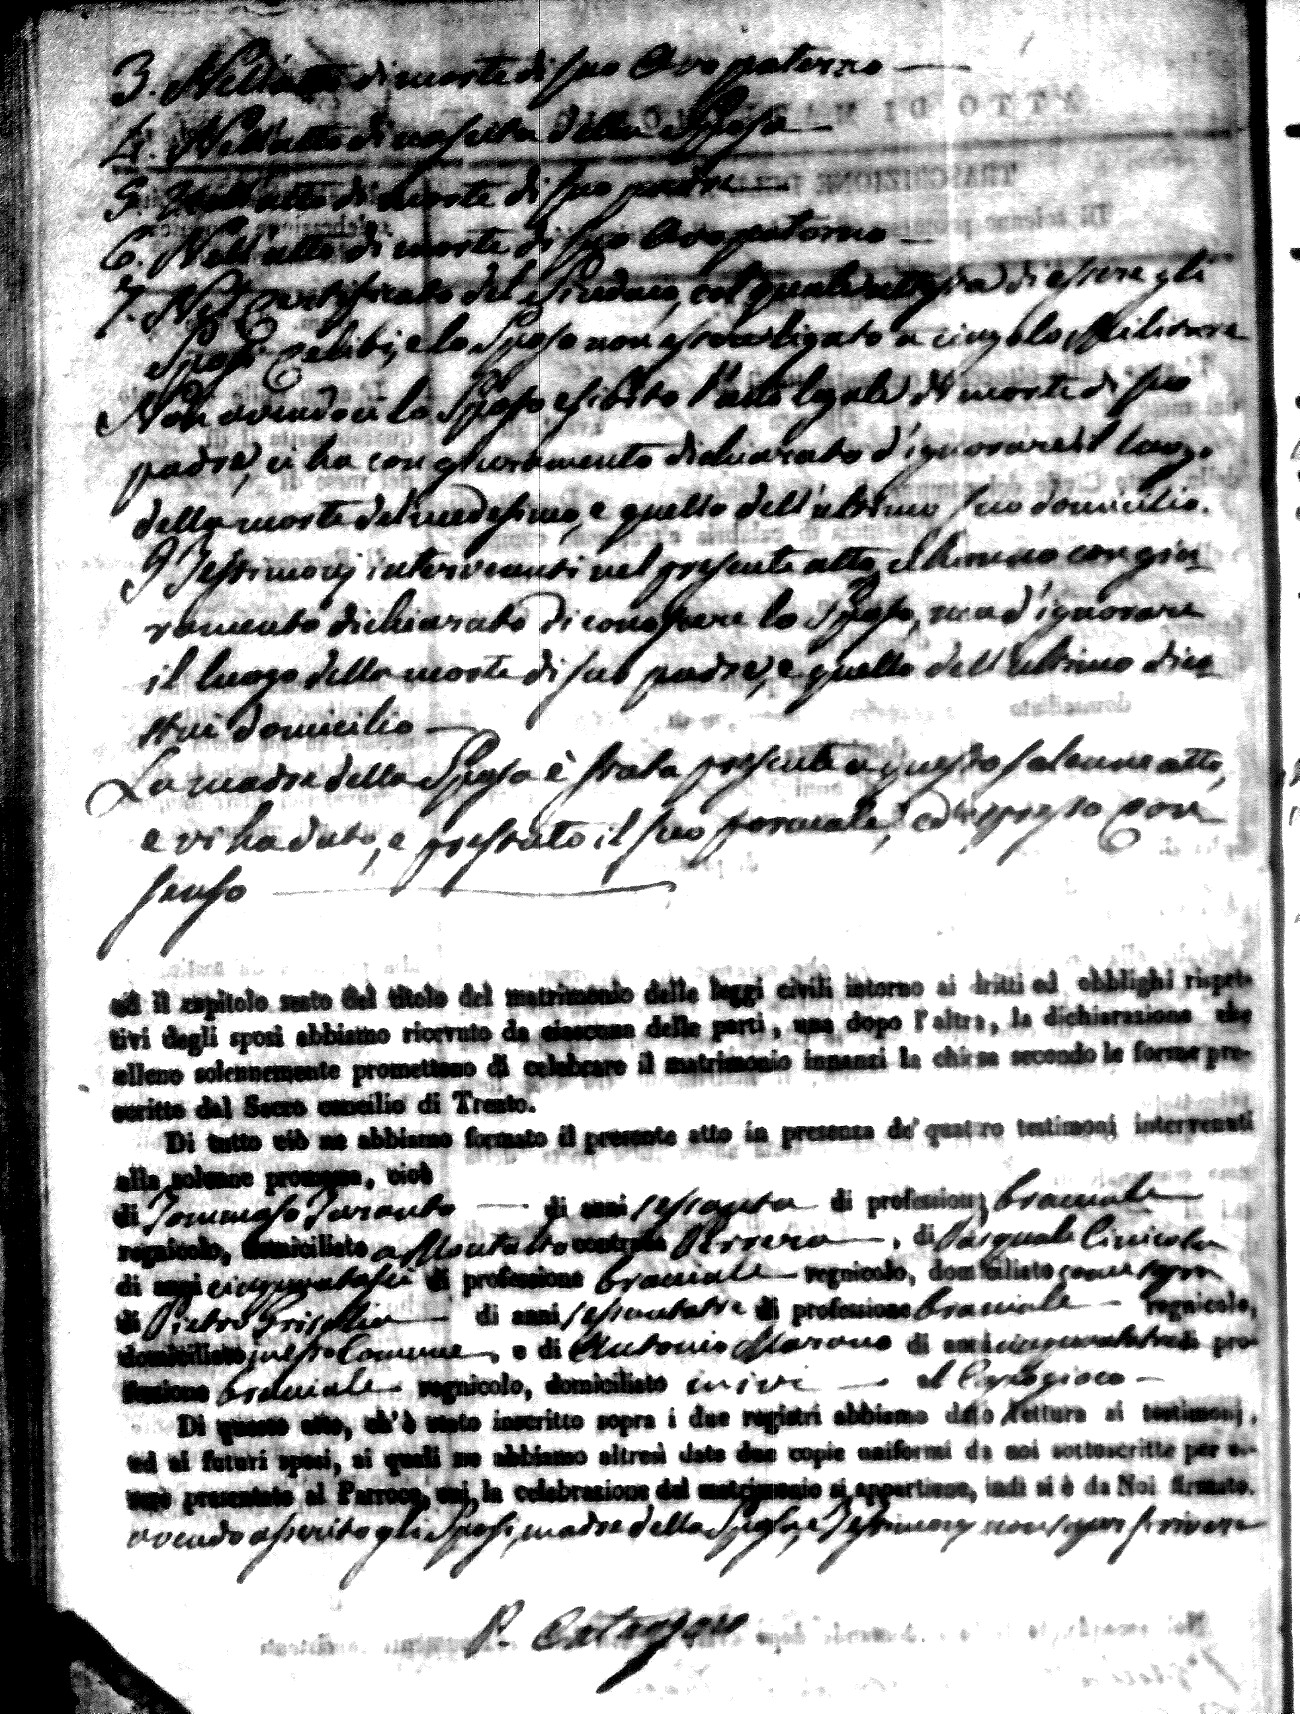 3. Nell'atto di morte di suo Avo paterno
4. Nell'atto di nascita della Sposa
5. Nell'atto di morte di suo padre
6. Nell'atto di morte di suo Avo paterno
7. Nel Certificato del Sindaco, col quale attesta di essere gli
Sposi Celibi, e lo Sposo non essere ligato a cingolo Militare
Non avendoci lo Sposo esibito l'atto legale di morte di suo
padre, ci ha con giuramento dichiarato d'ignorare il luogo
della morte del medesimo, e quello dell'ultimo suo domicilio.
I Testimonj intervenuti nel presente atto, hanno con giu-
ramento dichiarato di conoscere lo Sposo, ma d'ignorare
il luogo della morte di suo padre, e quello dell'ultimo di co-
stui domicilio
La madre della Sposa è stata presente a questo solenne atto,
e vi ha dato, e prestato il suo formale, ed espresso con
senso
ed il capitolo sesto del titolo del matrimonio delle leggi civili intorno ai dritti ed obblighi rispet-
tivi degli sposi abbiamo ricevuto da ciascuna delle parti, una dopo l'altra, la dichiarazione che
elleno solennemente promettono di celebrare il matrimonio innanzi la chiesa secondo le forme pre-
scritte dal Sacro concilio di Trento.
Di tutto ciò ne abbiamo formato il presente atto in presenza de' quattro testimonj intervenuti
alla solenne promessa, cioè
di Tommaso Taranto di anni sessanta di professione bracciale
regnicolo, domiciliato a Montalto contrada , di Pasquale
di anni cinquantasei di professione bracciale regnicolo, domiciliato come sopra
di Pietro di anni sessantatre di professione bracciale regnicolo,
domiciliato in esso Comune, e di Antonio Marano di anni di pro-
fessione bracciale regnicolo, domiciliato ivi
Di questo atto, ch'è stato inscritto sopra i due registri abbiamo dato lettura ai testimonj,
ed ai futuri sposi, ai quali ne abbiamo altresì date due copie uniformi da noi sottoscritte per es-
sere presentate al Parroco, cui la celebrazione del matrimonio si appartiene, indi si è da Noi firmato.
avendo asserito gli Sposi, madre della Sposa, e Testimonj non saper scrivere